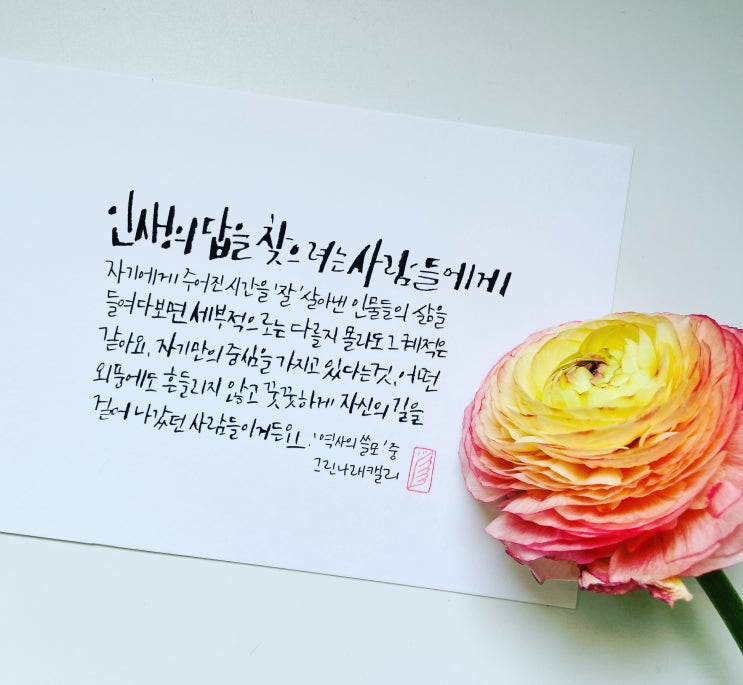 인생의 답을 찾으려는 사람들에게
자기에게 주어진 시간을 '잘' 살아낸 인물들의 삶을
들여다보면 세부적으로는 다를지 몰라도 그 궤적은
같아요. 자기만의 중심을 가지고 있다는 것, 어떤
외풍에도 흔들리지 않고 꿋꿋하게 자신의 길을
걸어 나갔던 사람들이거든요. '역사의 쓸모' 중
그린나래캘리